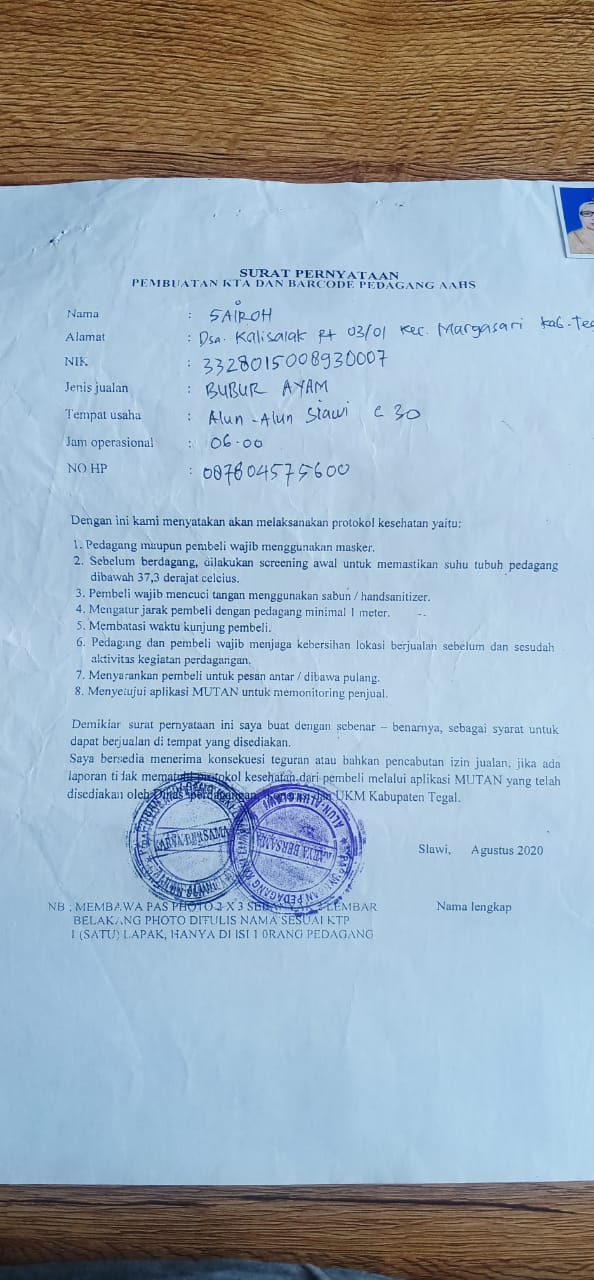 SURAT PERNYATAAN
PEMBUATAN KTA DAN BARCODE PEDAGANG AAHS
Nama : SAIROH
Alamat : Dsa. Kalisalak Rt 03/01 Kec. Margasari Kab. Teg
NIK : 3328015008930007
Jenis jualan : BUBUR AYAM
Tempat usaha : Alun - Alun Slawi C 30
Jam operasional : 06.00
NO HP : 087804575600
Dengan ini kami menyatakan akan melaksanakan protokol kesehatan yaitu:
1. Pedagang maupun pembeli wajib menggunakan masker.
2. Sebelum berdagang, dilakukan screening awal untuk memastikan suhu tubuh pedagang
dibawah 37,3 derajat celcius.
3. Pembeli wajib mencuci tangan menggunakan sabun / handsanitizer.
4. Mengatur jarak pembeli dengan pedagang minimal 1 meter.
5. Membatasi waktu kunjung pembeli.
6. Pedagang dan pembeli wajib menjaga kebersihan lokasi berjualan sebelum dan sesudah
aktivitas kegiatan perdagangan.
7. Menyarankan pembeli untuk pesan antar / dibawa pulang.
8. Menyetujui aplikasi MUTAN untuk memonitoring penjual.
Demikian surat pernyataan ini saya buat dengan sebenar – benarnya, sebagai syarat untuk
dapat berjualan di tempat yang disediakan.
Saya bersedia menerima konsekuesi teguran atau bahkan pencabutan izin jualan, jika ada
laporan tidak mematuhi protokol kesehatan dari pembeli melalui aplikasi MUTAN yang telah
disediakan oleh Dinas perdagangan, UKM Kabupaten Tegal.
KARYA BERSAMA
KARYA BERSAMA
ALUN ALUN SLAWI
Slawi, Agustus 2020
NB : MEMBAWA PAS PHOTO 2 X 3 LEMBAR
BELAKANG PHOTO DITULIS NAMA SESUAI KTP
1 (SATU) LAPAK, HANYA DI ISI 1 0RANG PEDAGANG
Nama lengkap